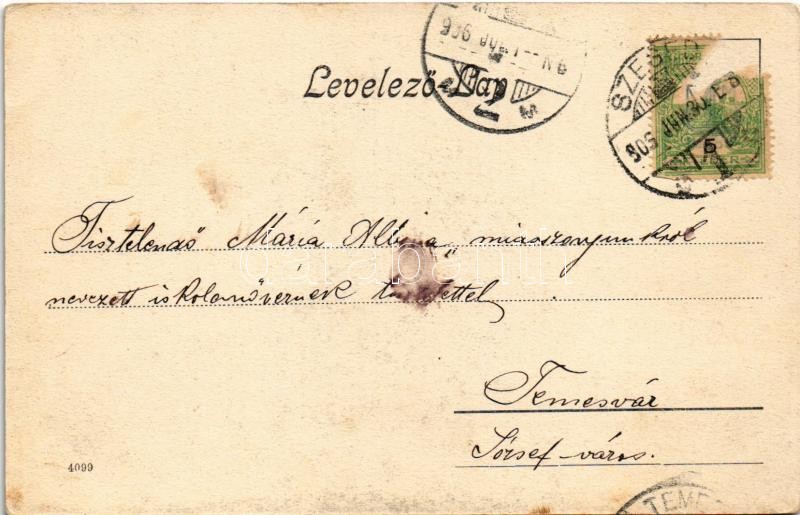 Levelező-Lap
SZEGED
905 JUN. 30. E 8
5
Tisztelendő Mária Albina miasszonyunkról
nevezett iskolanővérnek tisztelettel
Temesvár
József-város.
4099
TEMES
darabanti